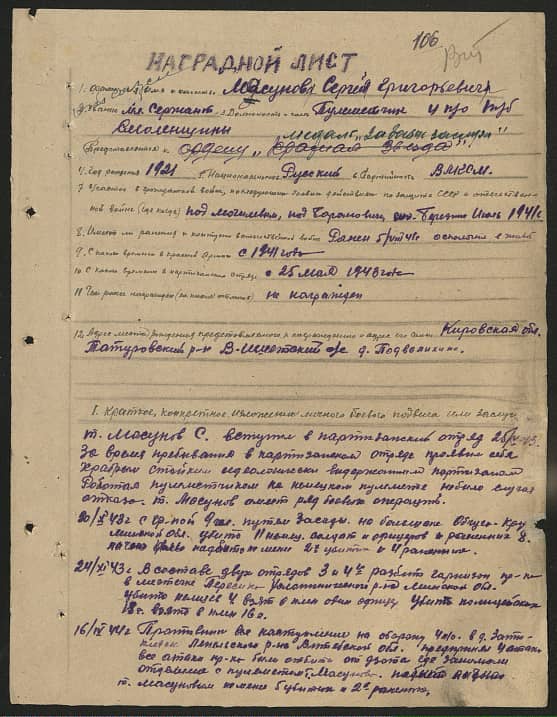 106
НАГРАДНОЙ ЛИСТ
1. Фамилия имя и отчество Масунов Сергей Григорьевич
2. Звание мл. Сержант 3. Должность и часть Пулеметчик 4 п/о
Смоленщины медаль "За боевые заслуги"
Представляется к ордену "Красная Звезда"
4. Год рождения 1921 5. Национальность Русский 6. Партийность ВЛКСМ.
7. Участие в гражданской войне, последующих боевых действиях по защите СССР и отечествен-
ной войне (где когда) под Могилевом, под Борановичи, Березино Июль 1941г.
8. Имеет ли ранения и контузии в отечественной войне Ранен 5/VIII 41г осколком в живот
9. С какого времени в красной Армии с 1941 года
10. С какого времени в партизанском отряде с 25 мая 1943 года
11. Чем ранее награжден (за какие отличия) не награжден
12. Адрес места рождения представляемого к награждению и адрес его семьи Кировская обл.
Татуровский р-н В-Шижотский с/с д. Подволихино.
I. Краткое, конкретное изложение личного боевого подвига или заслуг
т. Масунов С. вступил в партизанский отряд
За время пребывания в партизанском отряде проявил себя
Храбрым стойким идеологически выдержанным партизаном
Работая пулеметчиком на немецком пулемете не было случая
отказа. т. Масунов имеет ряд боевых операций.
20/XI 43г с гр-пой 9 чел. путем Засады. на большаке Обчуго-Кру
Минской обл. убито 11 немец. солдат и офицеров и раненных 8.
2х убитых и 4 раненных.
24/XI 43г. В составе двух отрядов 3 и 4го разбит гарнизон пр-ка
в местечке р-на Минской обл.
убито немцев 4. взят в плен один офицер убито полицейских
взято в плен 16 ч.
16/IV 44г Противник вел наступление на оборону 4 п/о. в д.
Лепельского р-на Витебской обл. предпринял 4 атаки
все атаки пр-ка были отбиты от дзота где занимали
отделение с пулеметчиком Масунов.
т. Масуновым убитых и 2х раненых,